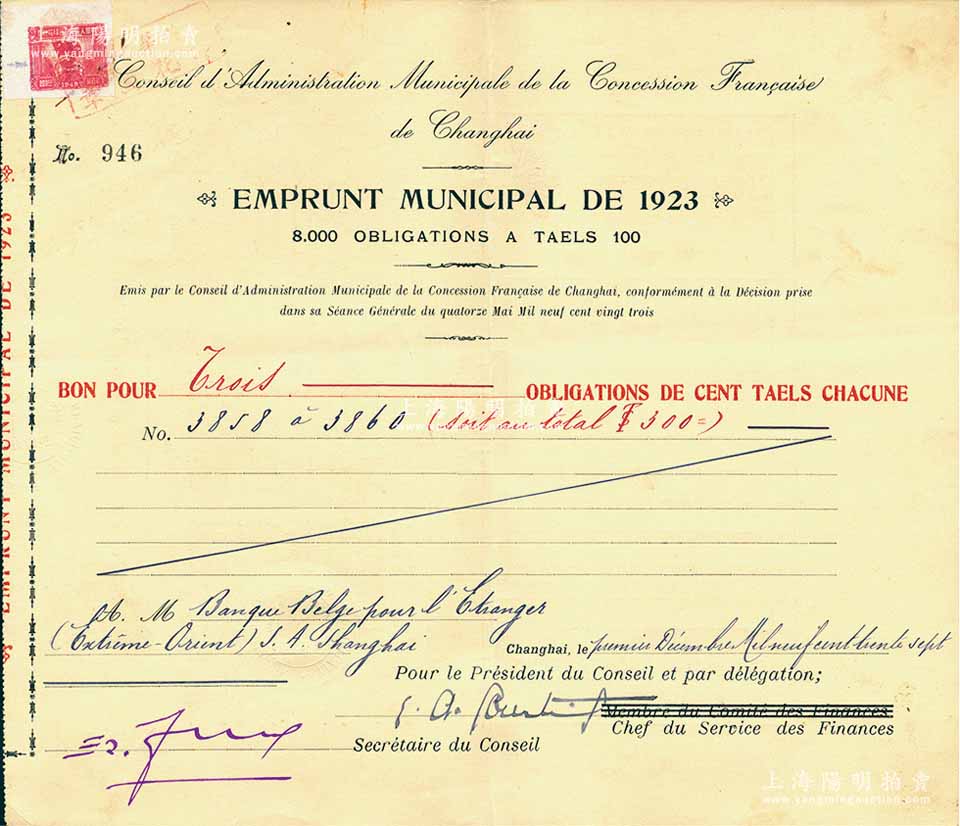 上海陽明拍賣
www.yangmingauction.com
Conseil d'Administration Municipale de la Concession Française
de Changhai
No. 946
EMPRUNT MUNICIPAL DE 1923
8.000 OBLIGATIONS A TAELS 100
Emis par le Conseil d'Administration Municipale de la Concession Française de Changhai, conformément à la Décision prise
dans sa Séance Générale du quatorze Mai Mil neuf cent vingt trois
BON POUR Trois OBLIGATIONS DE CENT TAELS CHACUNE
No. 3858 à 3860 (soit au total ₮ 300=)
上海陽明拍賣
EMPRUNT MUNICIPAL DE 1923
A. M Banque Belge pour l'Etranger
(Extrême-Orient) S. A. Shanghai
Changhai, le premier Décembre Mil neuf cent trente sept
Pour le Président du Conseil et par délégation;
Membre du Comité des Finances
Chef du Service des Finances
Secrétaire du Conseil
上海陽明拍賣
www.yangmingauction.com